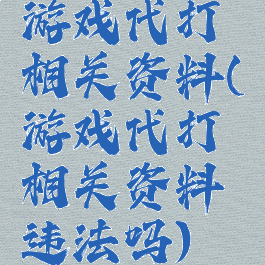 游戏代打
相关资料(
游戏代打
相关资料
违法吗)